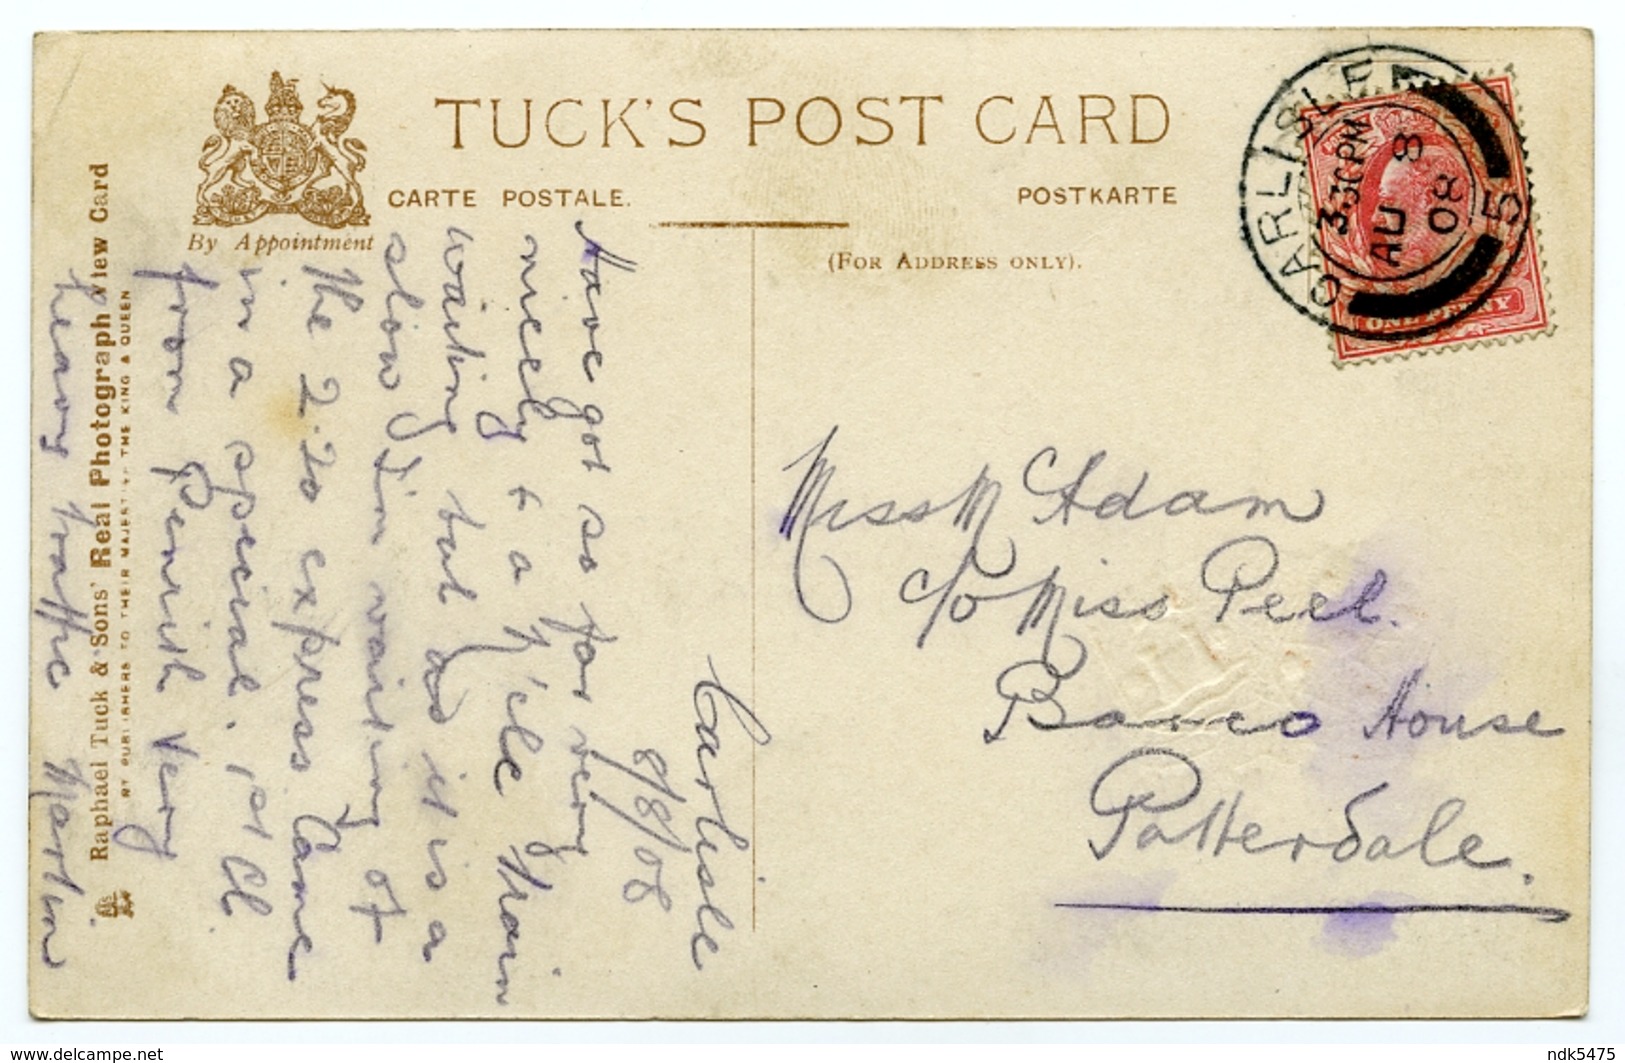 TUCK'S POST CARD
CARTE POSTALE.
POSTKARTE
By Appointment
(FOR ADDRESS ONLY).
Raphael Tuck & Sons' Real Photograph View Card
ART PUBLISHERS TO THEIR MAJESTIES THE KING & QUEEN
CARLISLE
3.30 PM
AU 8
08
5
ONE PENNY
Carlisle
8/8/08
Have got so far very
nicely & a n'ble train
waiting but as it is a
slow I'm waiting of
the 2.20 express Came
in a special. 1st Cl
from Penrith Very
heavy traffic Martin
Miss M Adam
c/o Miss Peel.
Barco House
Patterdale.
delcampe.net
ndk5475